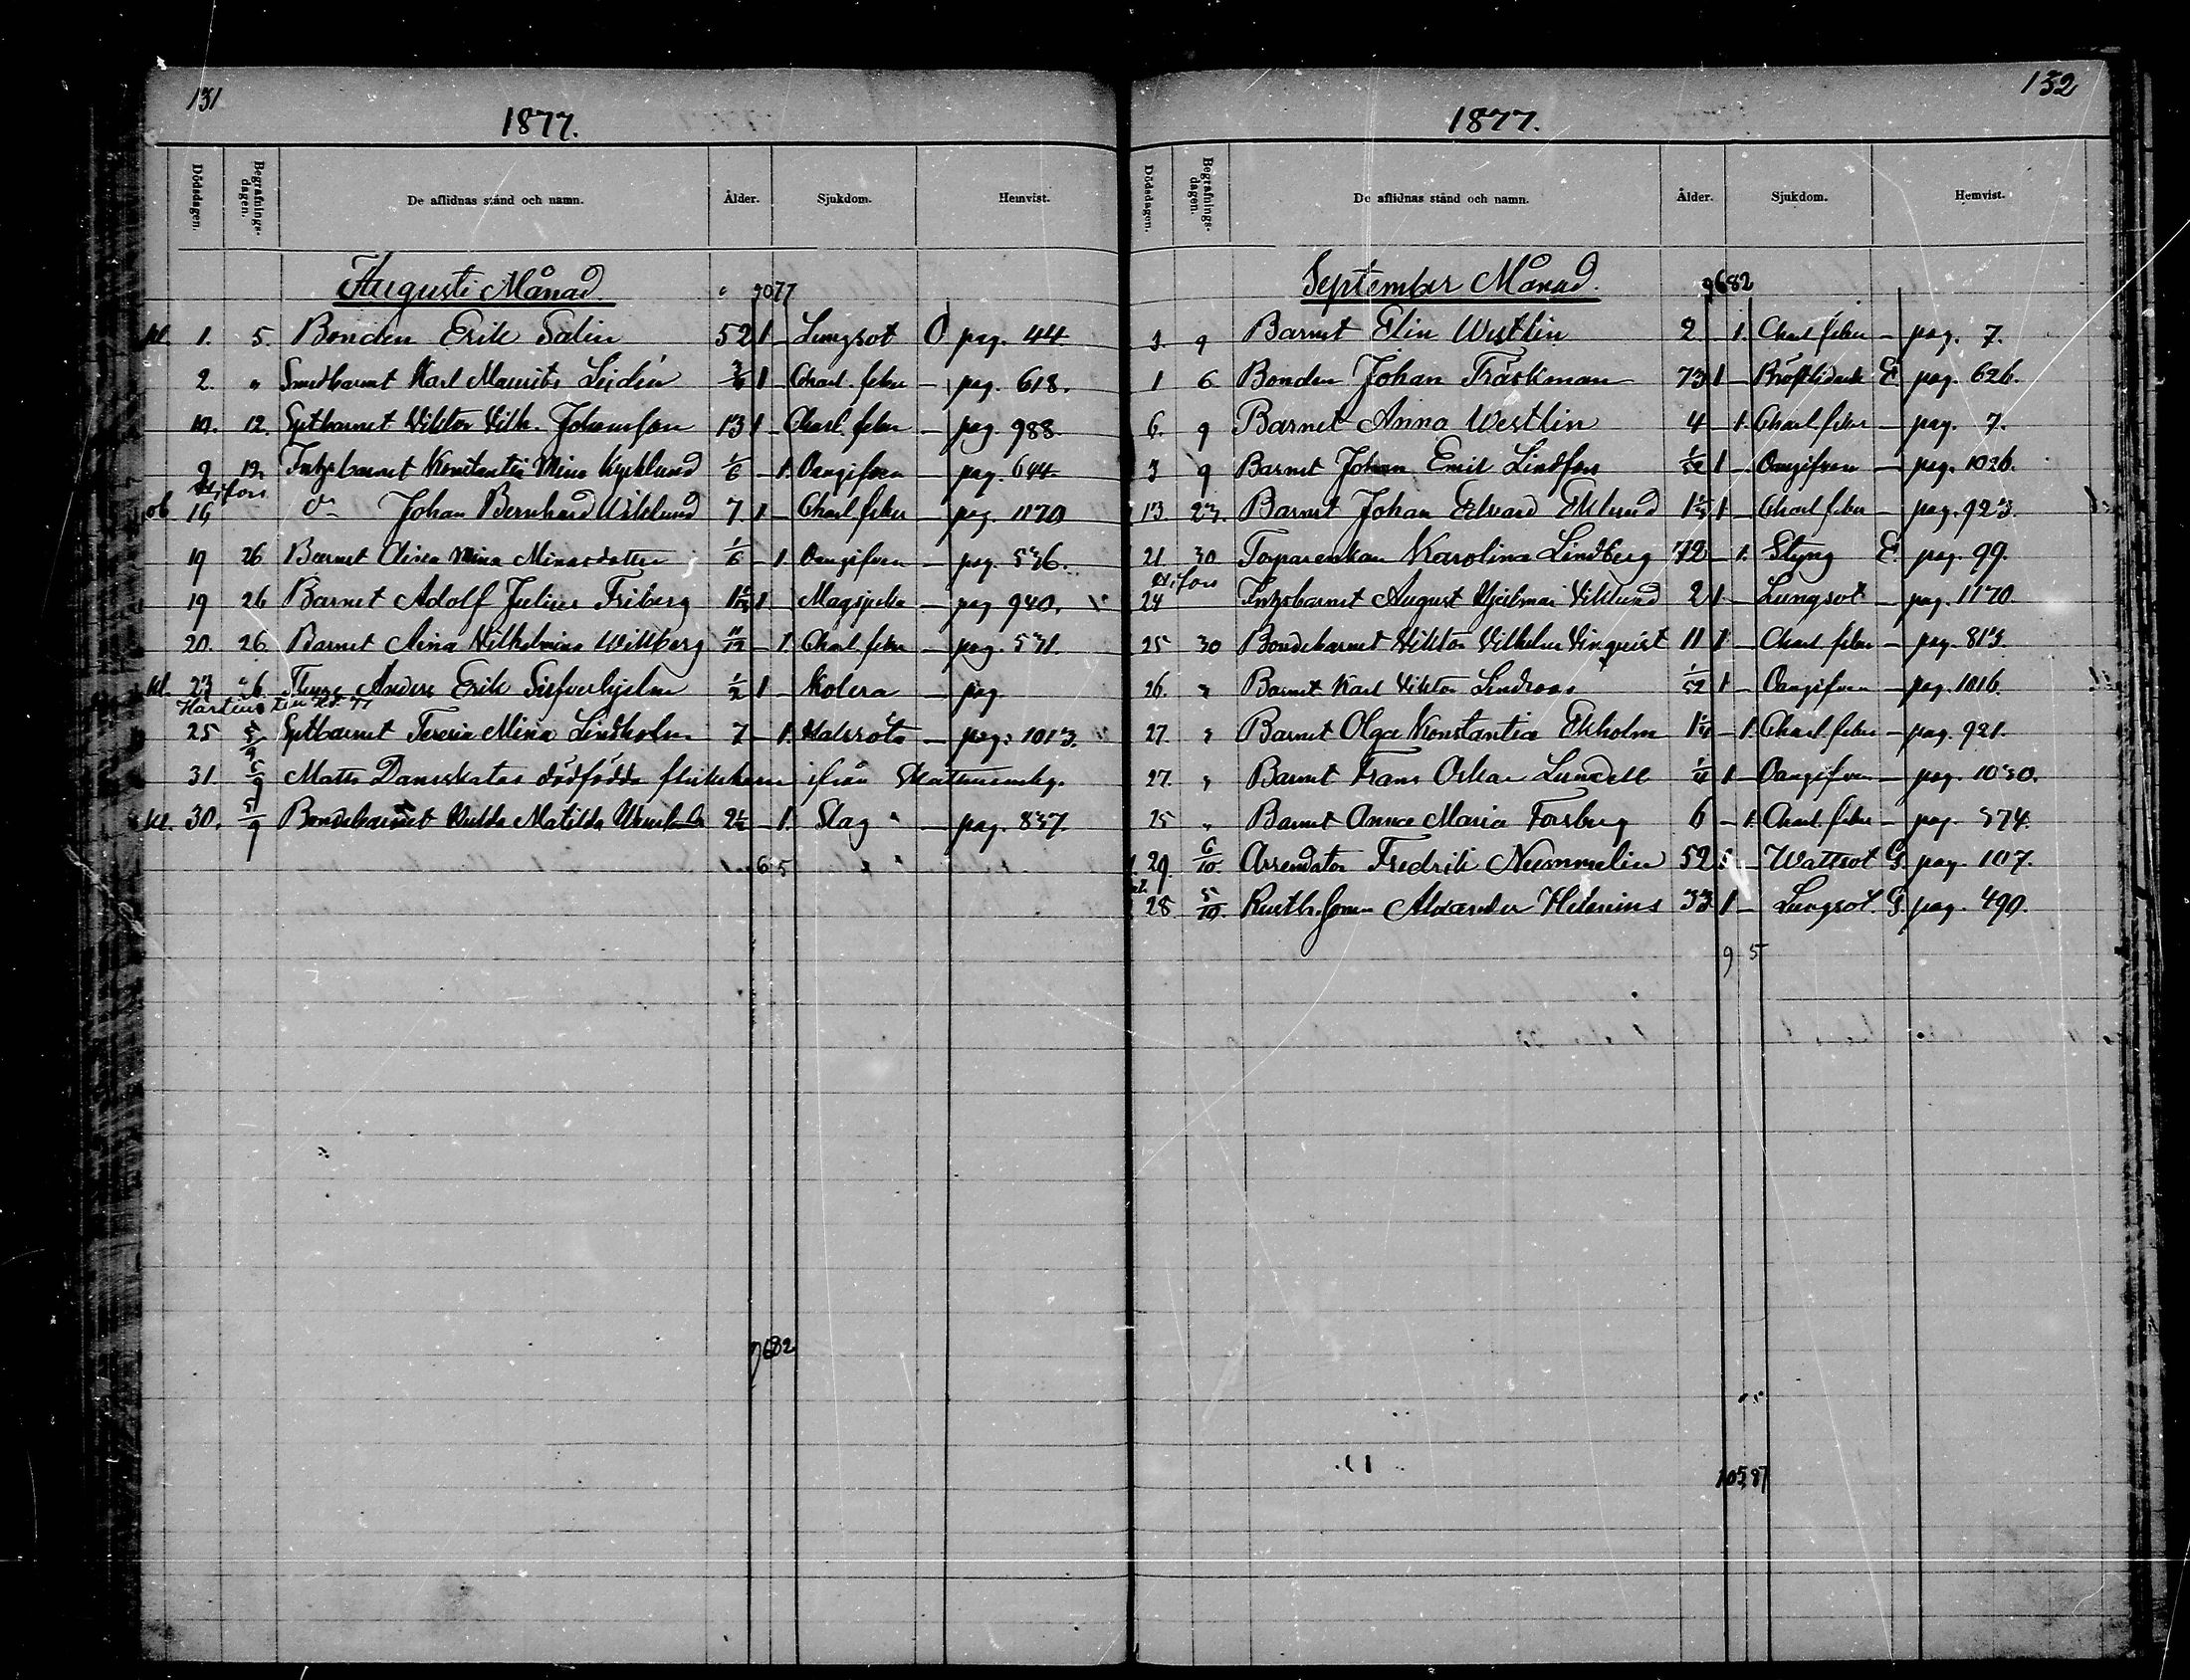 131
1877.
Dödsdagen. Begrafnings-dagen. De aflidnas stånd och namn. Ålder. Sjukdom. Hemvist.
Augusti Månad 9077
1. 5. Bonden Erik Salin 52 1 - Lungsot O pag. 44
2. " Smedbarnet Karl Maurits Lidén 1 - Charl. feber - pag. 618.
10. 12. Sytbarnet Viktor Vilh. Johansson 13 1 - Charl. feber - pag. 988.
9 12 Konstantia Mina 1/6 - 1. Oangifven - pag. 644
16 dn Johan Bernhard Wiklund 7 1 - Charl. feber - pag. 1170
19 26 Barnet Mina Minasdotter 1/6 - 1. Oangifven - pag. 536.
19 26 Barnet Adolf Julius Friberg 1 - pag. 940.
20. 26. Barnet Aina Vilhelmina Willberg 11/12 - 1. Charl. feber - pag. 531.
23 26. Anders Erik 1/2 1 - Kolera - pag
25 5/9 Sytbarnet Teresia Mina Lindholm 7 - 1. Halsröta - pag. 1013.
31. 6/9 Matts Danskatas dödfödda flickebarn ifrån
30. 5/9 Bondebarnet Hulda Matilda 2 1/2 - 1. Slag - pag. 837.
6 5
9682
132
1877.
Dödsdagen. Begrafnings-dagen. De aflidnas stånd och namn. Ålder. Sjukdom. Hemvist.
September Månad. 9682
3. 9 Barnet Elin Westlin 2 - 1. Charl feber - pag. 7.
1 6 Bonden Johan Träskman 73 1 - Bröstlidande E pag. 626.
6. 9 Barnet Anna Westlin 4 - 1. Charl feber - pag. 7.
3 9 Barnet Johan Emil Lindfors 1/52 1 - Oangifven - pag. 1026.
13. 23. Barnet Johan Edvard Eklund 1 1 - Charl feber - pag. 923.
21. 30 Torparenkan Karolina Lindberg 72 - 1. Styng E. pag. 99.
24 August Hjelmar Viklund 2 1 - Lungsot - pag. 1170.
25 30 Bondebarnet Viktor Vilhelm Linqvist 11 1 - Charl. feber - pag. 813.
26. " Barnet Karl Viktor Lindroos 1/52 1 - Oangifven - pag. 1016.
27. " Barnet Olga Konstantia Ekholm 1 - 1. Charl. feber - pag. 921.
27. " Barnet Frans Oskar Lundell 1 - Oangifven - pag. 1030.
25 " Barnet Anna Maria Forsberg 6 - 1. Charl. feber - pag. 574.
29. 6/10. Arrendator Fredrik Nummelin 52 1 - Wattsot G. pag. 107.
28 5/10. Alexander Helenius 33 1 - Lungsot. G. pag. 490.
9 5
10587